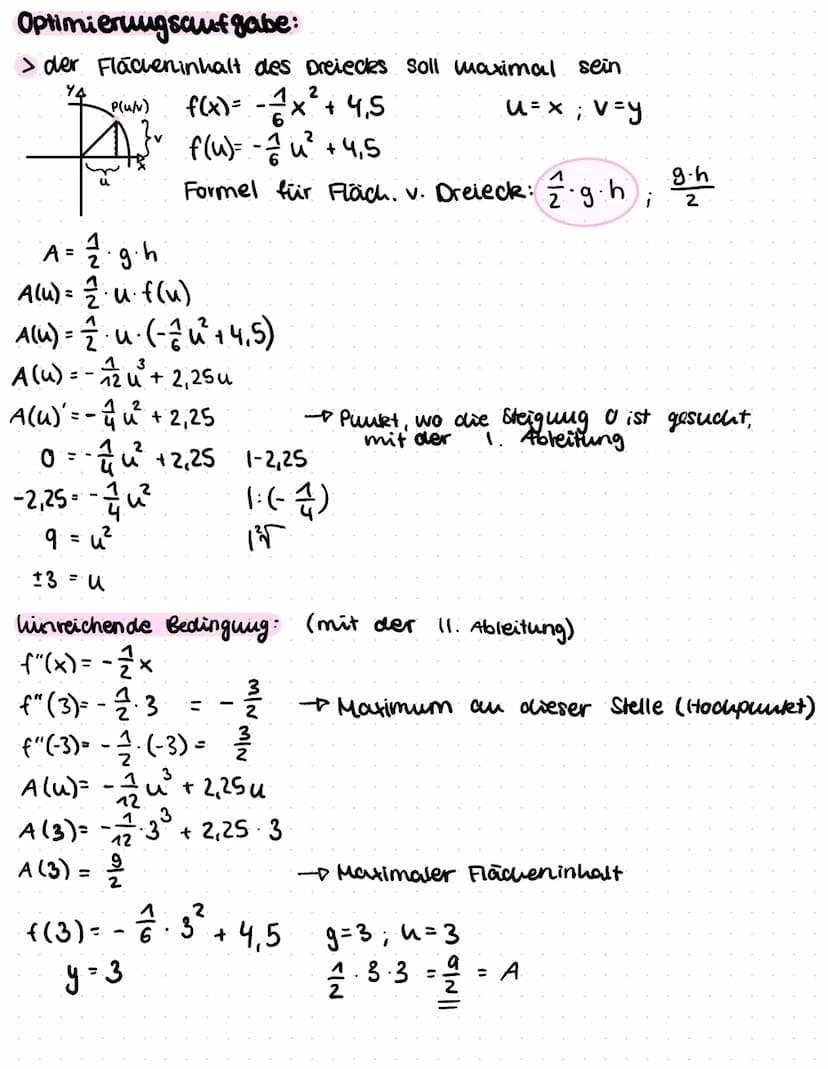 Optimierungsaufgabe:
> der Flächeninhalt des Dreiecks soll maximal sein
y
P(u/v)
v
x
u
f(x) = -1/6 x² + 4,5     u = x ; v = y
f(u) = -1/6 u² + 4,5
Formel für Fläch. v. Dreieck: 1/2 · g · h ; g·h/2
A = 1/2 · g · h
A(u) = 1/2 · u · f(u)
A(u) = 1/2 · u · (-1/6 u² + 4,5)
A(u) = -1/12 u³ + 2,25u
A(u)' = -1/4 u² + 2,25     → Punkt, wo die Steigung 0 ist gesucht,
mit der 1. Ableitung
0 = -1/4 u² + 2,25   |-2,25
-2,25 = -1/4 u²   |:(-1/4)
9 = u²   |²√
±3 = u
hinreichende Bedingung: (mit der 11. Ableitung)
f''(x) = -1/2 x
f''(3) = -1/2 · 3 = -3/2   → Maximum an dieser Stelle (Hochpunkt)
f''(-3) = -1/2 · (-3) = 3/2
A(u) = -1/12 u³ + 2,25u
A(3) = -1/12 · 3³ + 2,25 · 3
A(3) = 9/2   → Maximaler Flächeninhalt
f(3) = -1/6 · 3² + 4,5   g=3 ; h=3
y = 3   1/2 · 3 · 3 = 9/2 = A